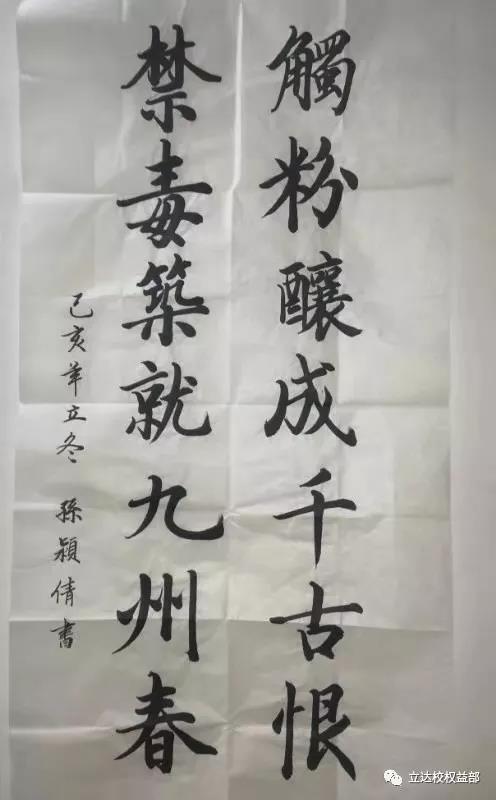 觸粉釀成千古恨
禁毒築就九州春
己亥年立冬 孫穎倩書
立达校权益部